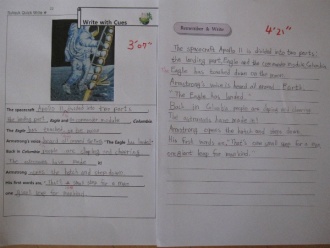 Write with Cues
3'07"
The spacecraft Apollo 11 divided into two parts
the landing part, Eagle and command module, Columbia.
The Eagle has
Armstrong's voice heard all around Earth. "The Eagle has landed."
Back in Columbia people are and cheering.
The astronauts have made it!
Armstrong opens the hatch and steps down.
His first words are, "That's small step for a man
and giant leap for mankind.
Remember & Write
4'21"
The spacecraft Apollo 11 is divided into two parts,
the landing part, Eagle and the command module, Columbia.
Eagle has touched down on the moon.
Armstrong's voice is heard all around Earth.
"The Eagle has landed."
Back in Columbia people are and cheering.
The astronauts have made it!
Armstrong opens the hatch and steps down.
His first words are, "That's one small step for a man
one giant leap for mankind.